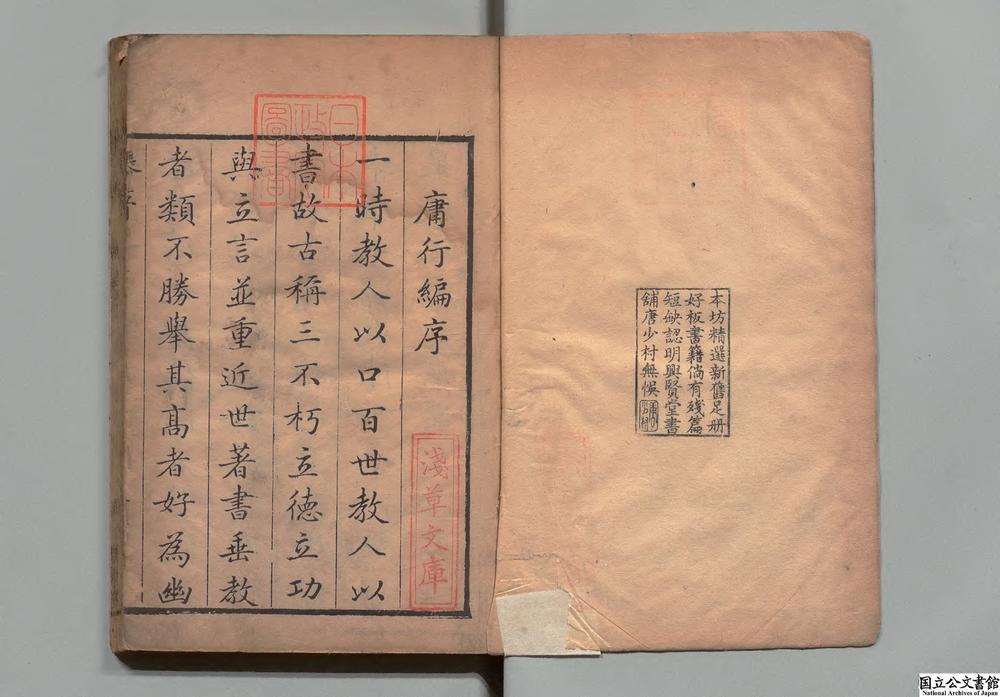 本坊精選新舊足册
好板書籍倘有殘篇
短缺認明興賢堂書
舖唐少村無悞
日本
政
圖書
庸行編序
淺草文庫
一時教人以口百世教人以
書故古稱三不朽立德立功
與立言並重近世著書垂教
者類不勝舉其髙者好為幽
国立公文書館
National Archives of Japan